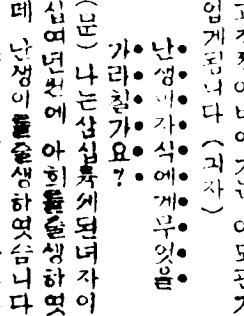 업게됩니다 (긔자)
난쟁이자식에게무엇을
가라칠가요?
(문) 나는삼십륙세된녀자이
십여년전에 아희를출생하엿
데 난쟁이를출생하엿슴니다